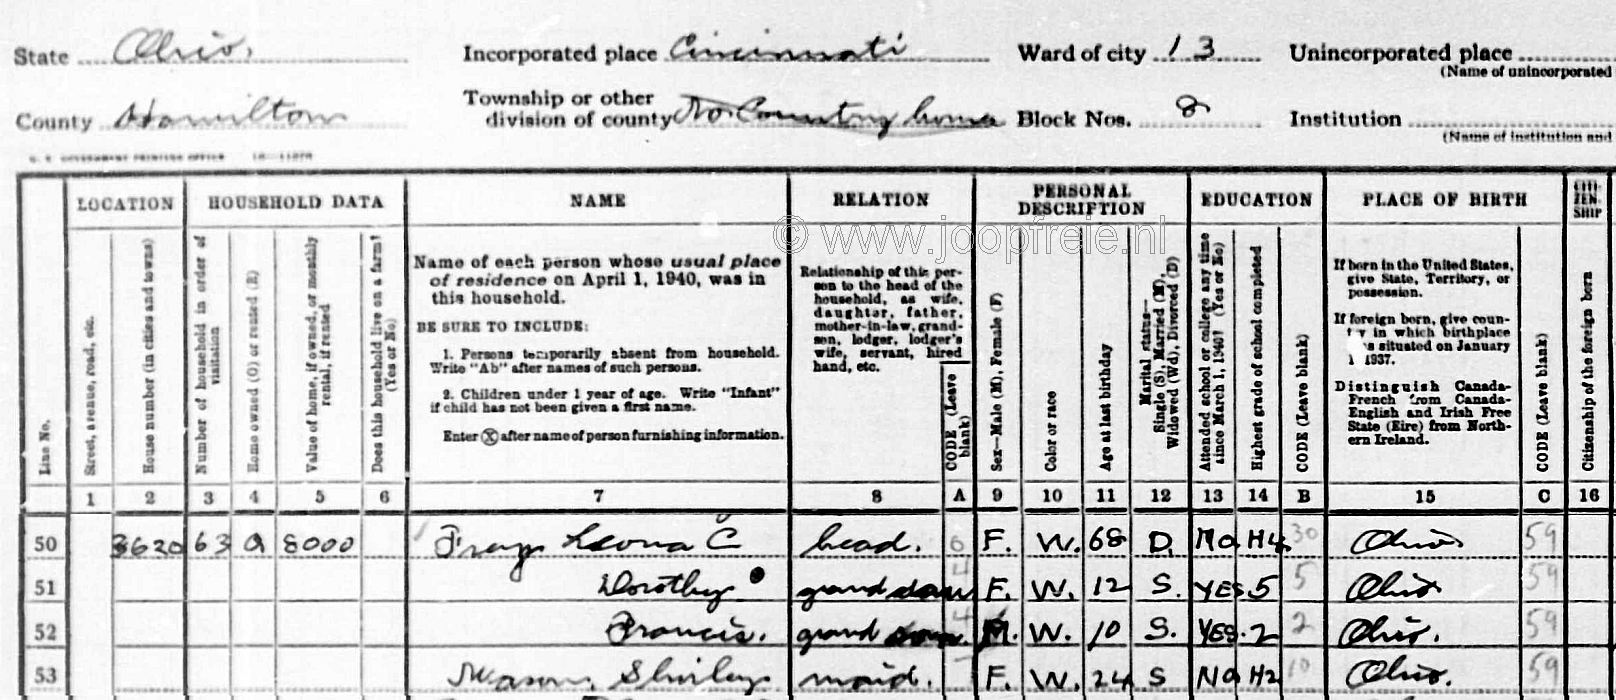 State Ohio. Incorporated place Cincinnati Ward of city 13 Unincorporated place
(Name of unincorporated
County Hamilton Township or other division of county No Country home Block Nos. 8 Institution
(Name of institution and
U. S. GOVERNMENT PRINTING OFFICE
LOCATION HOUSEHOLD DATA NAME RELATION PERSONAL DESCRIPTION EDUCATION PLACE OF BIRTH CITIZENSHIP
© www.joopfreie.nl
Line No.
Street, avenue, road, etc.
House number (in cities and towns)
Number of household in order of visitation
Home owned (O) or rented (R)
Value of home, if owned, or monthly rental, if rented
Does this household live on a farm? (Yes or No)
Name of each person whose usual place
of residence on April 1, 1940, was in
this household.
BE SURE TO INCLUDE:
1. Persons temporarily absent from household.
Write "Ab" after names of such persons.
2. Children under 1 year of age. Write "Infant"
if child has not been given a first name.
Enter Ⓧ after name of person furnishing information.
Relationship of this per-
son to the head of the
household, as wife,
daughter, father,
mother-in-law, grand-
son, lodger, lodger's
wife, servant, hired
hand, etc.
CODE (Leave blank)
Sex—Male (M), Female (F)
Color or race
Age at last birthday
Marital status—
Single (S), Married (M),
Widowed (Wd), Divorced (D)
Attended school or college any time
since March 1, 1940? (Yes or No)
Highest grade of school completed
CODE (Leave blank)
If born in the United States,
give State, Territory, or
possession.
If foreign born, give coun-
try in which birthplace
was situated on January
1, 1937.
Distinguish Canada-
French from Canada-
English and Irish Free
State (Eire) from North-
ern Ireland.
CODE (Leave blank)
Citizenship of the foreign born
1 2 3 4 5 6 7 8 A 9 10 11 12 13 14 B 15 C 16
50 3620 63 O 8000 Leona C head. 0 F. W. 68 D. No H4 30 Ohio 59
51 Dorothy grand dau 4 F. W. 12 S. YES 5 5 Ohio 59
52 Francis. grand 4 M. W. 10 S. YES. 2 2 Ohio. 59
53 Mason, Shirley maid. 7 F. W. 24 S No H2 10 Ohio. 59